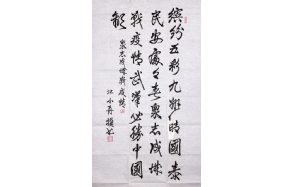 缤纷五彩九州晴国泰
民安处处春众志成城
战疫情武汉必胜中国
能
众志成城战疫情
小舟撰书